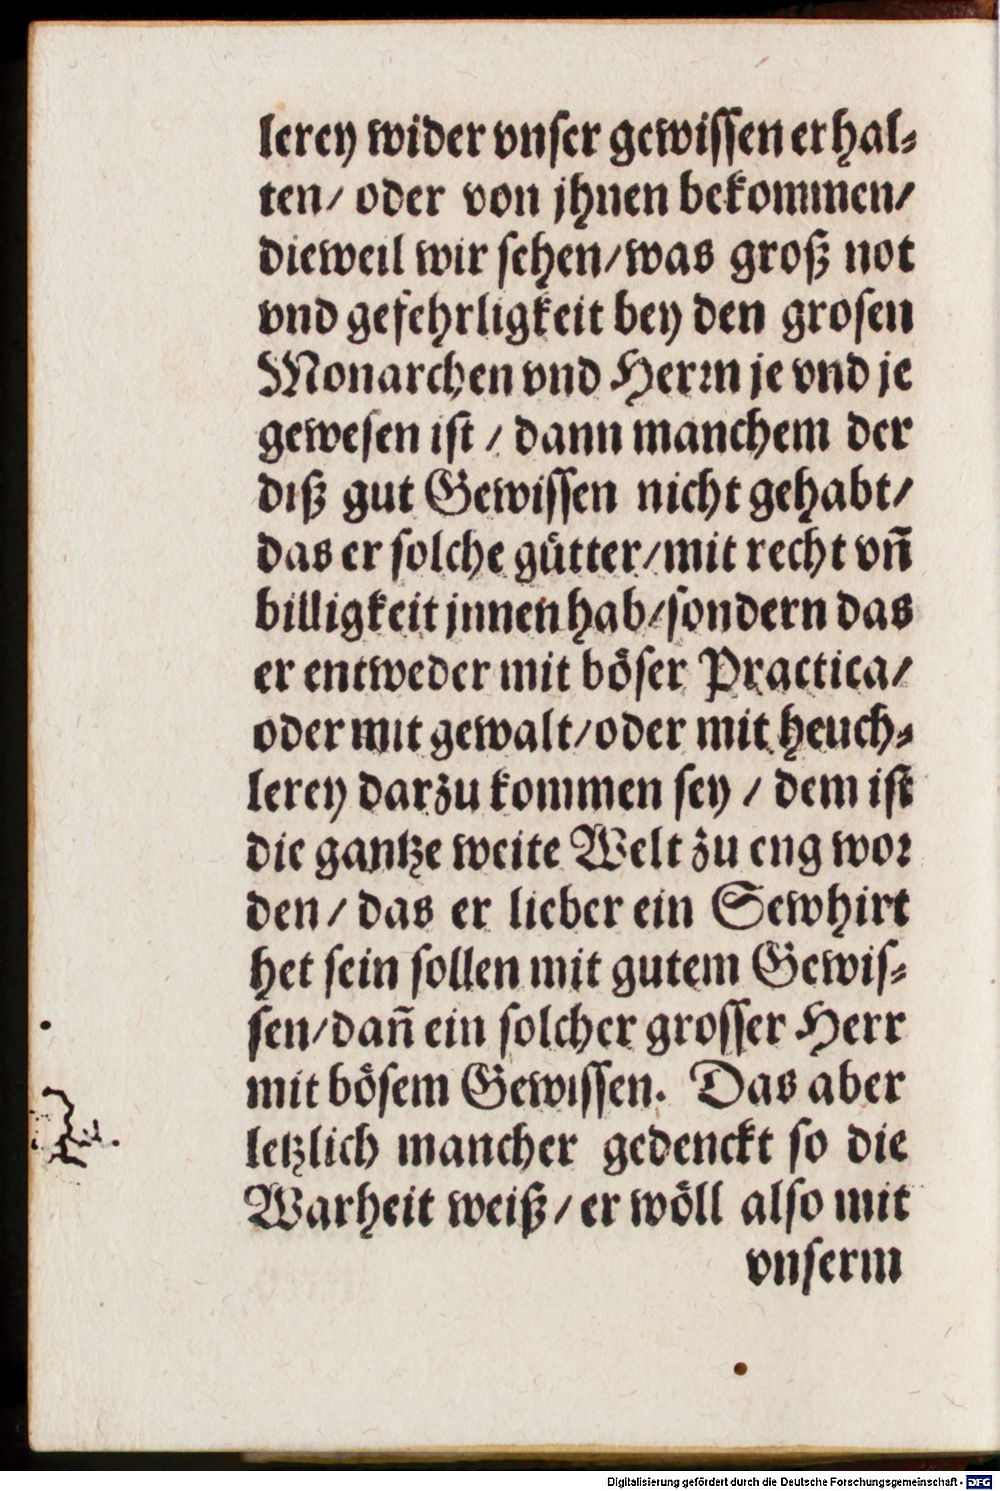 lerey wider vnſer gewiſſen erhal⸗
ten/ oder von jhnen bekommen/
dieweil wir ſehen/was groß not
vnd gefehrligkeit bey den groſen
Monarchen vnd Herꝛn je vnd je
geweſen iſt / dann manchem der
diß gut Gewiſſen nicht gehabt/
das er ſolche guͤtter/mit recht vñ
billigkeit jnnen hab/ſondern das
er entweder mit boͤſer Practica/
oder mit gewalt/oder mit heuch⸗
lerey darzu kommen ſey / dem iſt
die gantze weite Welt zu eng woꝛ
den/ das er lieber ein Sewhirt
het ſein ſollen mit gutem Gewiſ⸗
ſen/dañ ein ſolcher groſſer Herr
mit boͤſem Gewiſſen. Das aber
letzlich mancher gedenckt ſo die
Warheit weiß/ er woͤll alſo mit
vnſerm
Digitalisierung gefördert durch die Deutsche Forschungsgemeinschaft - DFG